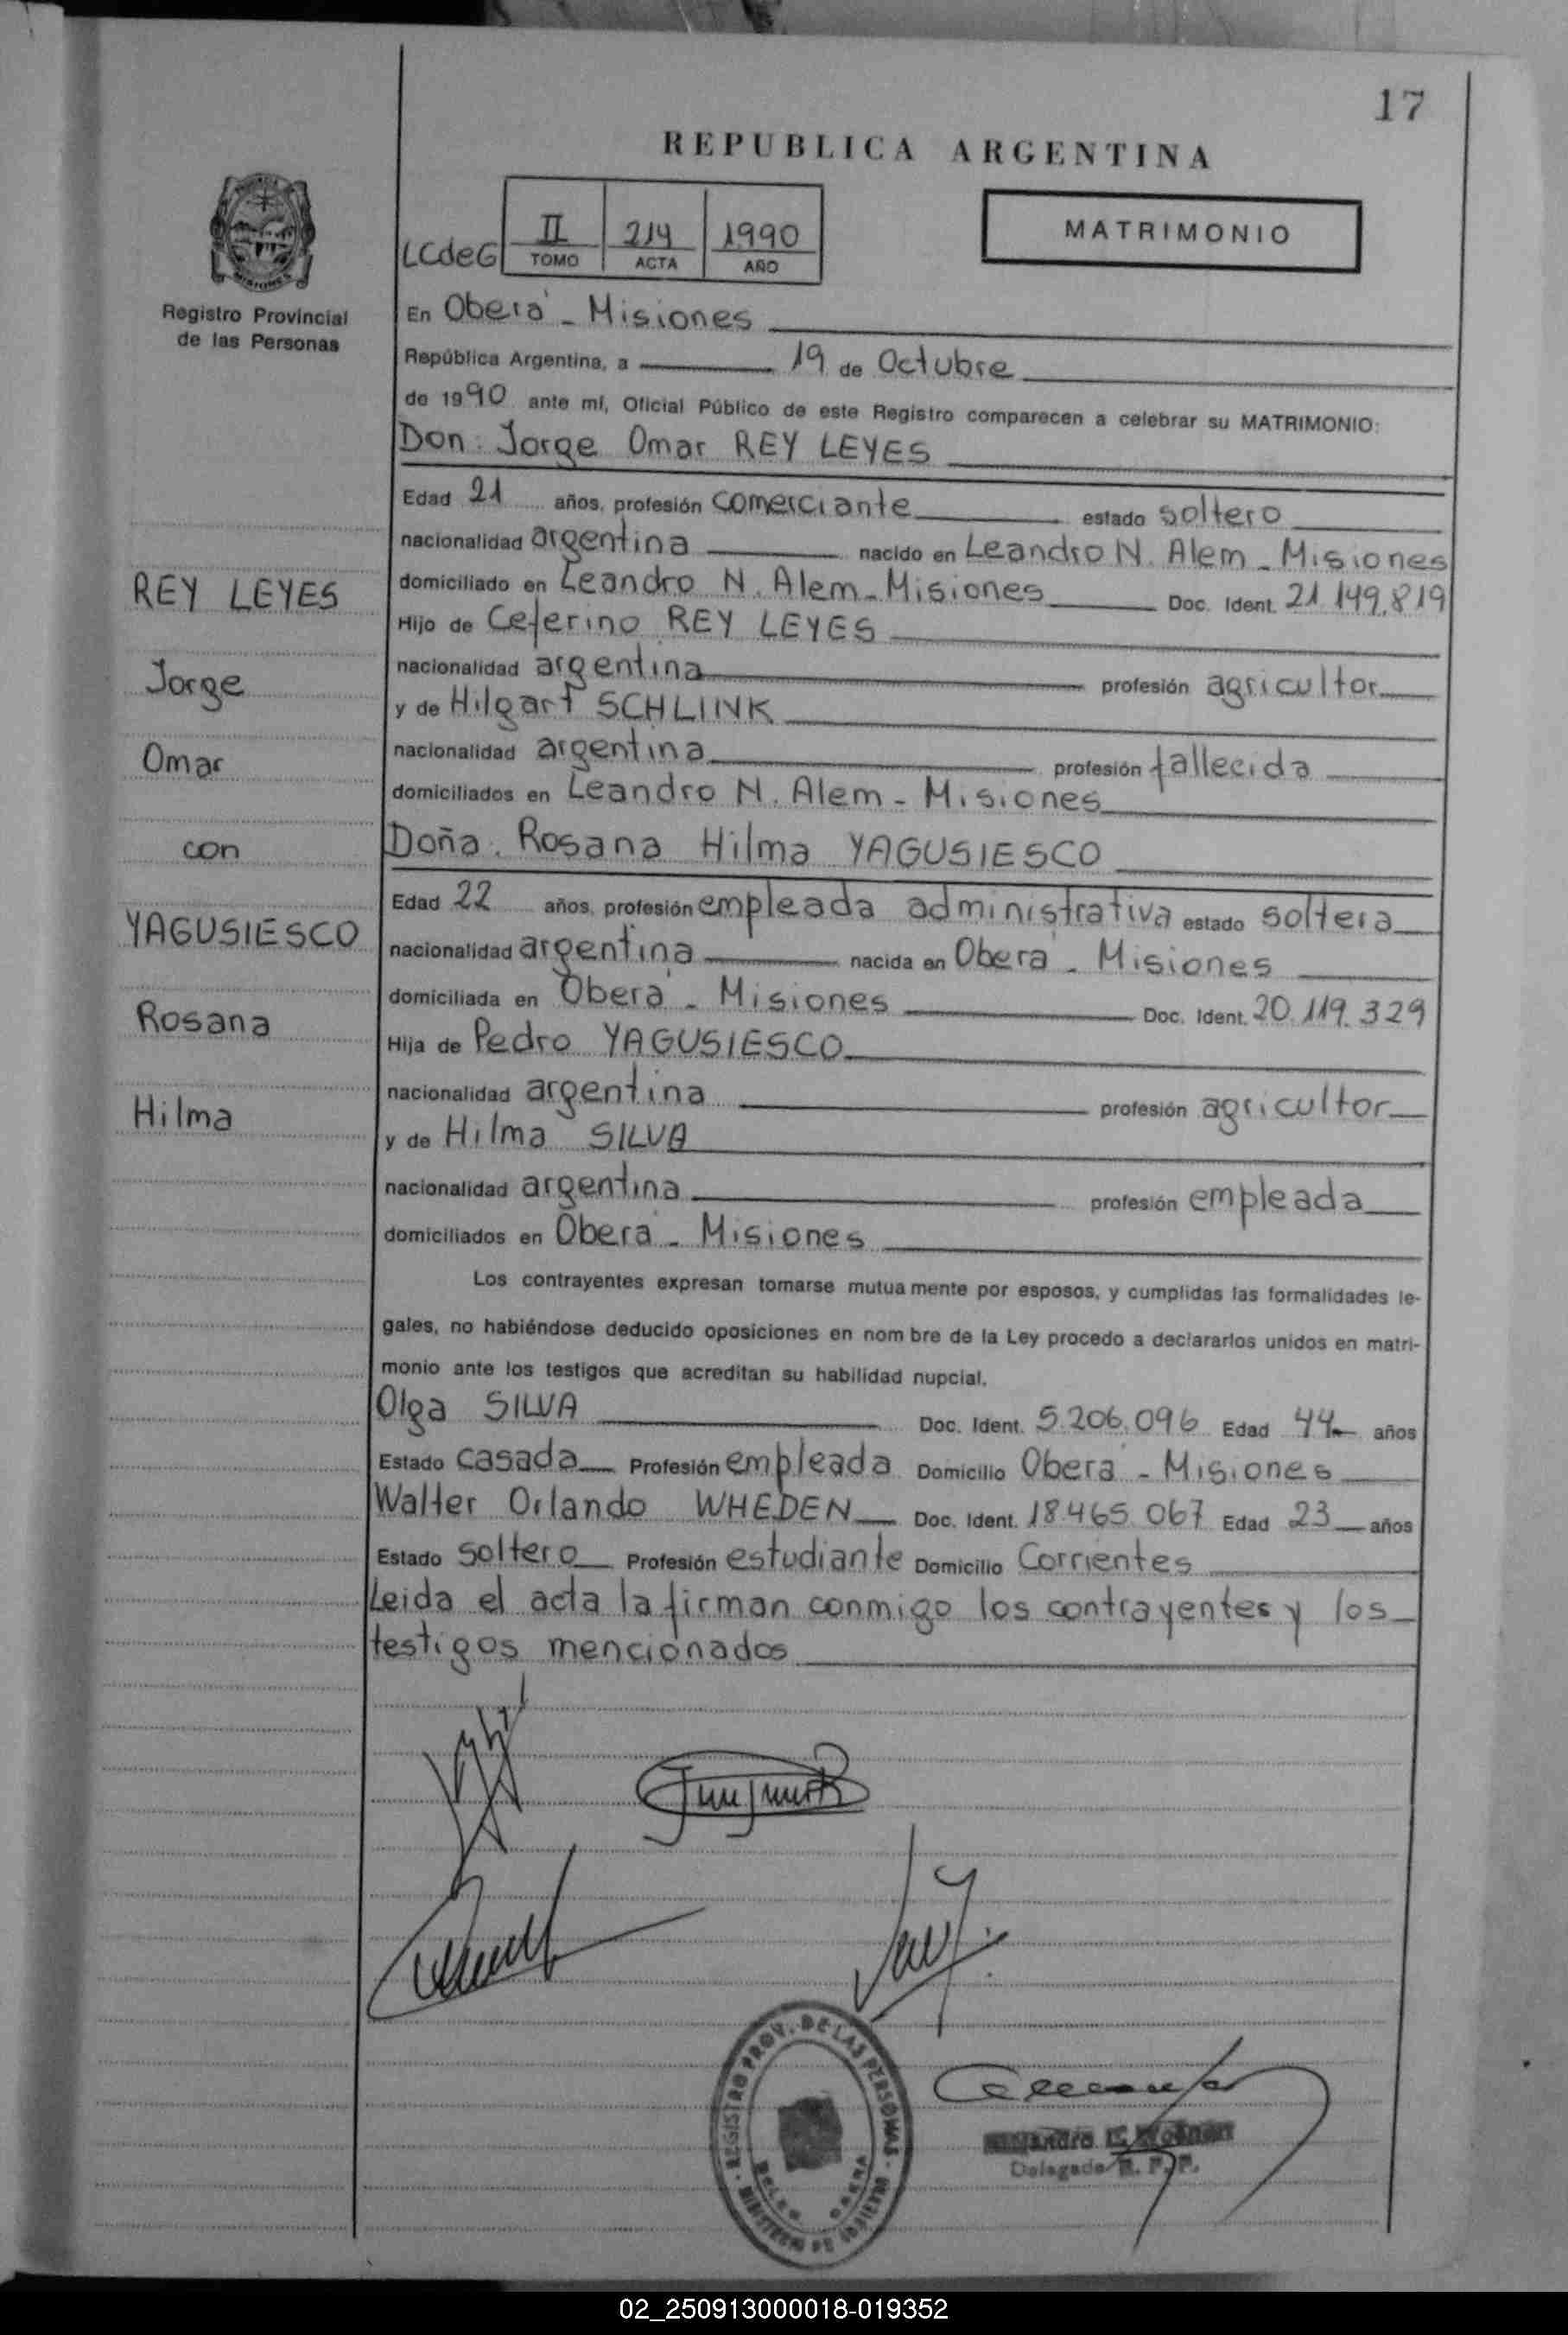 17
REPUBLICA ARGENTINA
LCdeG II 214 1990
TOMO ACTA AÑO
MATRIMONIO
Registro Provincial
de las Personas
En Oberá - Misiones
República Argentina, a 19 de Octubre
de 1990 ante mí, Oficial Público de este Registro comparecen a celebrar su MATRIMONIO:
Don: Jorge Omar REY LEYES
Edad 21 años, profesión comerciante estado soltero
nacionalidad argentina nacido en Leandro N. Alem - Misiones
domiciliado en Leandro N. Alem - Misiones Doc. Ident. 21.149.819
Hijo de Ceferino REY LEYES
nacionalidad argentina profesión agricultor
y de Hilgart SCHLINK
nacionalidad argentina profesión fallecida
domiciliados en Leandro N. Alem - Misiones
Doña. Rosana Hilma YAGUSIESCO
Edad 22 años, profesión empleada administrativa estado soltera
nacionalidad argentina nacida en Oberá - Misiones
domiciliada en Oberá - Misiones Doc. Ident. 20.119.329
Hija de Pedro YAGUSIESCO
nacionalidad argentina profesión agricultor
y de Hilma SILVA
nacionalidad argentina profesión empleada
domiciliados en Oberá - Misiones
Los contrayentes expresan tomarse mutuamente por esposos, y cumplidas las formalidades le-
gales, no habiéndose deducido oposiciones en nombre de la Ley procedo a declararlos unidos en matri-
monio ante los testigos que acreditan su habilidad nupcial.
Olga SILVA Doc. Ident. 5.206.096 Edad 44 años
Estado casada Profesión empleada Domicilio Oberá - Misiones
Walter Orlando WHEDEN Doc. Ident. 18.465.067 Edad 23 años
Estado soltero Profesión estudiante Domicilio Corrientes
Leida el acta la firman conmigo los contrayentes y los
testigos mencionados
REY LEYES
Jorge
Omar
con
YAGUSIESCO
Rosana
Hilma
REGISTRO PROV. DE LAS PERSONAS
MINISTERIO DE
Delegado R. P. P.
02_250913000018-019352